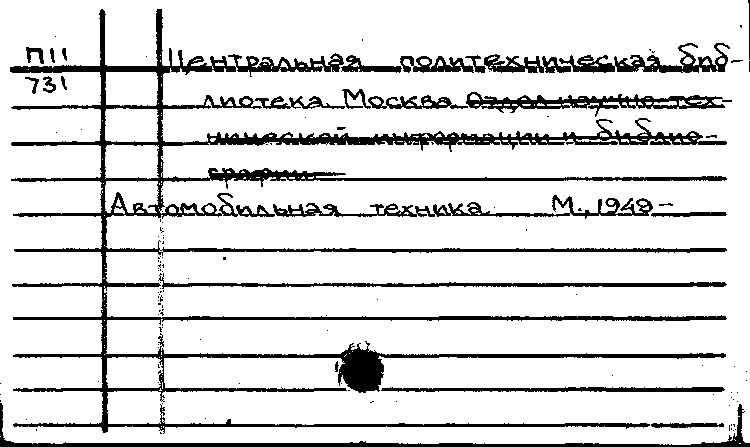 П11
731
Центральная политехническая биб-
лиотека. Москва. Отдел научно-тех-
нической информации и библио-
графии
Автомобильная техника. М., 1949-